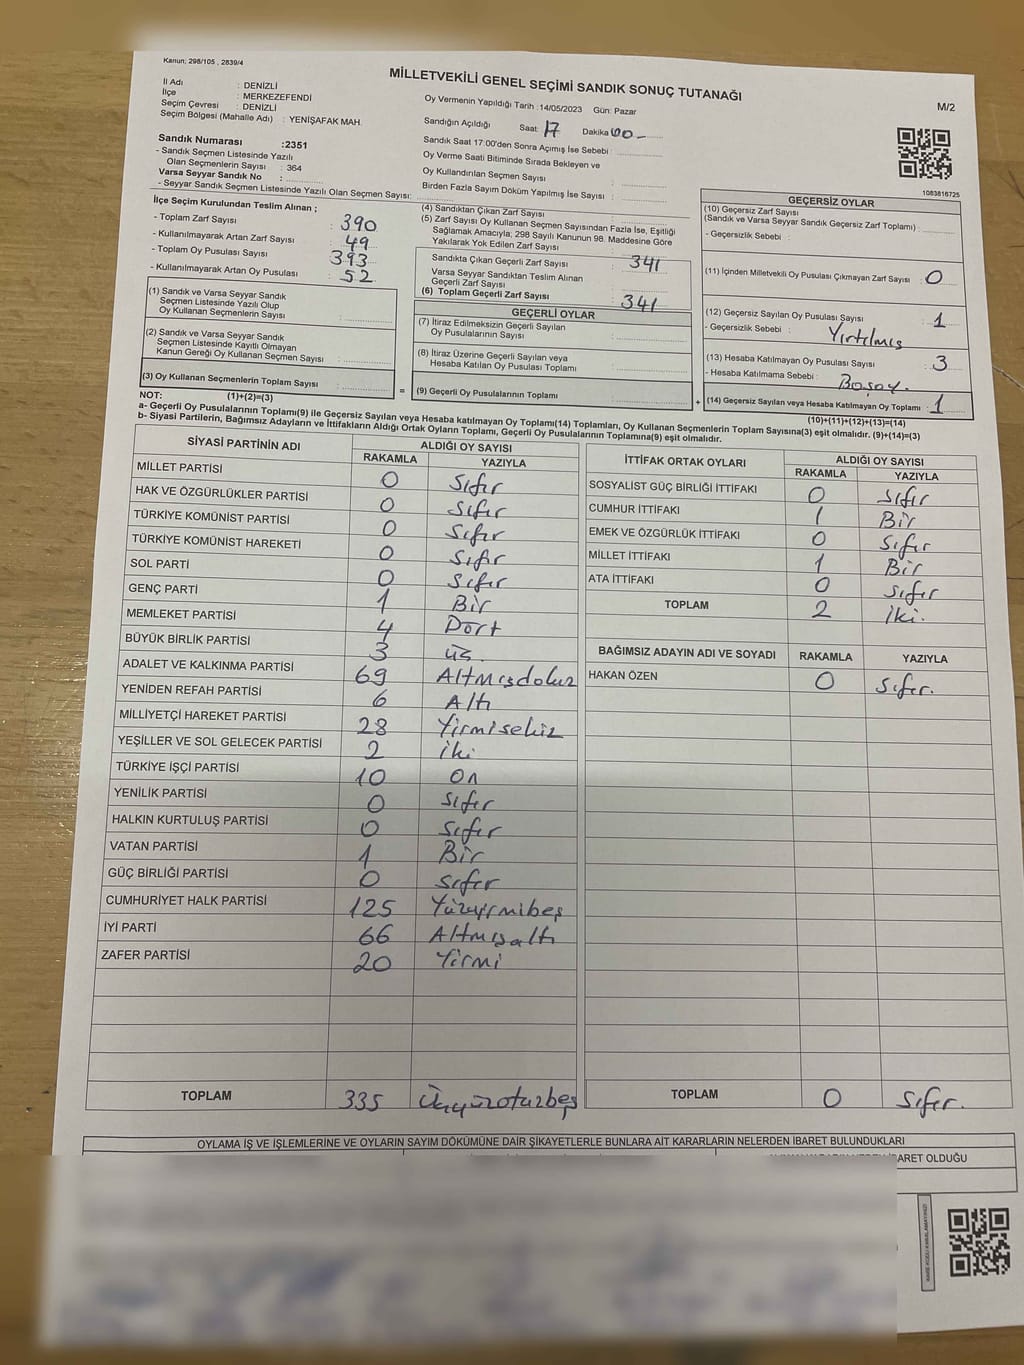 Kanun: 298/105 , 2839/4
MİLLETVEKİLİ GENEL SEÇİMİ SANDIK SONUÇ TUTANAĞI
M/2
İl Adı : DENİZLİ
İlçe : MERKEZEFENDİ
Seçim Çevresi : DENİZLİ
Seçim Bölgesi (Mahalle Adı) : YENİŞAFAK MAH.
Sandık Numarası :2351
- Sandık Seçmen Listesinde Yazılı
Olan Seçmenlerin Sayısı : 364
Varsa Seyyar Sandık No :
- Seyyar Sandık Seçmen Listesinde Yazılı Olan Seçmen Sayısı:
Oy Vermenin Yapıldığı Tarih :14/05/2023 Gün: Pazar
Sandığın Açıldığı Saat: 17 Dakika 00
Sandık Saat 17:00'den Sonra Açımış İse Sebebi :
Oy Verme Saati Bitiminde Sırada Bekleyen ve
Oy Kullandırılan Seçmen Sayısı :
Birden Fazla Sayım Döküm Yapılmış İse Sayısı :
1083816725
İlçe Seçim Kurulundan Teslim Alınan ;
- Toplam Zarf Sayısı : 390
- Kullanılmayarak Artan Zarf Sayısı : 49
- Toplam Oy Pusulası Sayısı : 393
- Kullanılmayarak Artan Oy Pusulası : 52
(1) Sandık ve Varsa Seyyar Sandık
Seçmen Listesinde Yazılı Olup
Oy Kullanan Seçmenlerin Sayısı :
(2) Sandık ve Varsa Seyyar Sandık
Seçmen Listesinde Kayıtlı Olmayan
Kanun Gereği Oy Kullanan Seçmen Sayısı :
(3) Oy Kullanan Seçmenlerin Toplam Sayısı :
(1)+(2)=(3)
(4) Sandıktan Çıkan Zarf Sayısı :
(5) Zarf Sayısı Oy Kullanan Seçmen Sayısından Fazla İse, Eşitliği
Sağlamak Amacıyla, 298 Sayılı Kanunun 98. Maddesine Göre
Yakılarak Yok Edilen Zarf Sayısı :
Sandıkta Çıkan Geçerli Zarf Sayısı : 341
Varsa Seyyar Sandıktan Teslim Alınan
Geçerli Zarf Sayısı :
(6) Toplam Geçerli Zarf Sayısı : 341
GEÇERLİ OYLAR
(7) İtiraz Edilmeksizin Geçerli Sayılan
Oy Pusulalarının Sayısı :
(8) İtiraz Üzerine Geçerli Sayılan veya
Hesaba Katılan Oy Pusulası Toplamı :
= (9) Geçerli Oy Pusulalarının Toplamı : +
GEÇERSİZ OYLAR
(10) Geçersiz Zarf Sayısı
(Sandık ve Varsa Seyyar Sandık Geçersiz Zarf Toplamı) :
- Geçersizlik Sebebi :
(11) İçinden Milletvekili Oy Pusulası Çıkmayan Zarf Sayısı : 0
(12) Geçersiz Sayılan Oy Pusulası Sayısı : 1
- Geçersizlik Sebebi : Yırtılmış
(13) Hesaba Katılmayan Oy Pusulası Sayısı : 3
- Hesaba Katılmama Sebebi :
(14) Geçersiz Sayılan veya Hesaba Katılmayan Oy Toplamı : 1
(10)+(11)+(12)+(13)=(14)
NOT:
a- Geçerli Oy Pusulalarının Toplamı(9) ile Geçersiz Sayılan veya Hesaba katılmayan Oy Toplamı(14) Toplamları, Oy Kullanan Seçmenlerin Toplam Sayısına(3) eşit olmalıdır. (9)+(14)=(3)
b- Siyasi Partilerin, Bağımsız Adayların ve İttifakların Aldığı Ortak Oyların Toplamı, Geçerli Oy Pusulalarının Toplamına(9) eşit olmalıdır.
SİYASİ PARTİNİN ADI ALDIĞI OY SAYISI
RAKAMLA YAZIYLA
MİLLET PARTİSİ 0 Sıfır
HAK VE ÖZGÜRLÜKLER PARTİSİ 0 Sıfır
TÜRKİYE KOMÜNİST PARTİSİ 0 Sıfır
TÜRKİYE KOMÜNİST HAREKETİ 0 Sıfır
SOL PARTİ 0 Sıfır
GENÇ PARTİ 1 Bir
MEMLEKET PARTİSİ 4 Dört
BÜYÜK BİRLİK PARTİSİ 3 üç
ADALET VE KALKINMA PARTİSİ 69 Altmışdokuz
YENİDEN REFAH PARTİSİ 6 Altı
MİLLİYETÇİ HAREKET PARTİSİ 28 Yirmisekiz
YEŞİLLER VE SOL GELECEK PARTİSİ 2 iki
TÜRKİYE İŞÇİ PARTİSİ 10 On
YENİLİK PARTİSİ 0 Sıfır
HALKIN KURTULUŞ PARTİSİ 0 Sıfır
VATAN PARTİSİ 1 Bir
GÜÇ BİRLİĞİ PARTİSİ 0 Sıfır
CUMHURİYET HALK PARTİSİ 125 Yüzyirmibeş
İYİ PARTİ 66 Altmışaltı
ZAFER PARTİSİ 20 Yirmi
TOPLAM 335 Üçyüzotuzbeş
İTTİFAK ORTAK OYLARI ALDIĞI OY SAYISI
RAKAMLA YAZIYLA
SOSYALIST GÜÇ BİRLİĞİ İTTİFAKI 0 Sıfır
CUMHUR İTTİFAKI 1 Bir
EMEK VE ÖZGÜRLÜK İTTİFAKI 0 Sıfır
MİLLET İTTİFAKI 1 Bir
ATA İTTİFAKI 0 Sıfır
TOPLAM 2 iki.
BAĞIMSIZ ADAYIN ADI VE SOYADI RAKAMLA YAZIYLA
HAKAN ÖZEN 0 Sıfır.
TOPLAM 0 Sıfır.
OYLAMA İŞ VE İŞLEMLERİNE VE OYLARIN SAYIM DÖKÜMÜNE DAİR ŞİKAYETLERLE BUNLARA AİT KARARLARIN NELERDEN İBARET BULUNDUKLARI
OLDUĞU